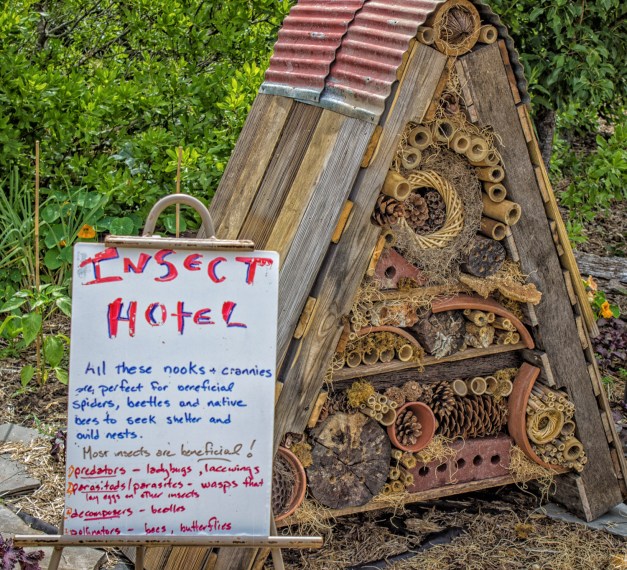 INSECT
HOTEL
All these nooks + crannies
are perfect for beneficial
spiders, beetles and native
bees to seek shelter and
build nests.
Most insects are beneficial!
predators - ladybugs, lacewings
parasitoids/parasites - wasps that
lay eggs on other insects
decomposers - beetles
pollinators - bees, butterflies